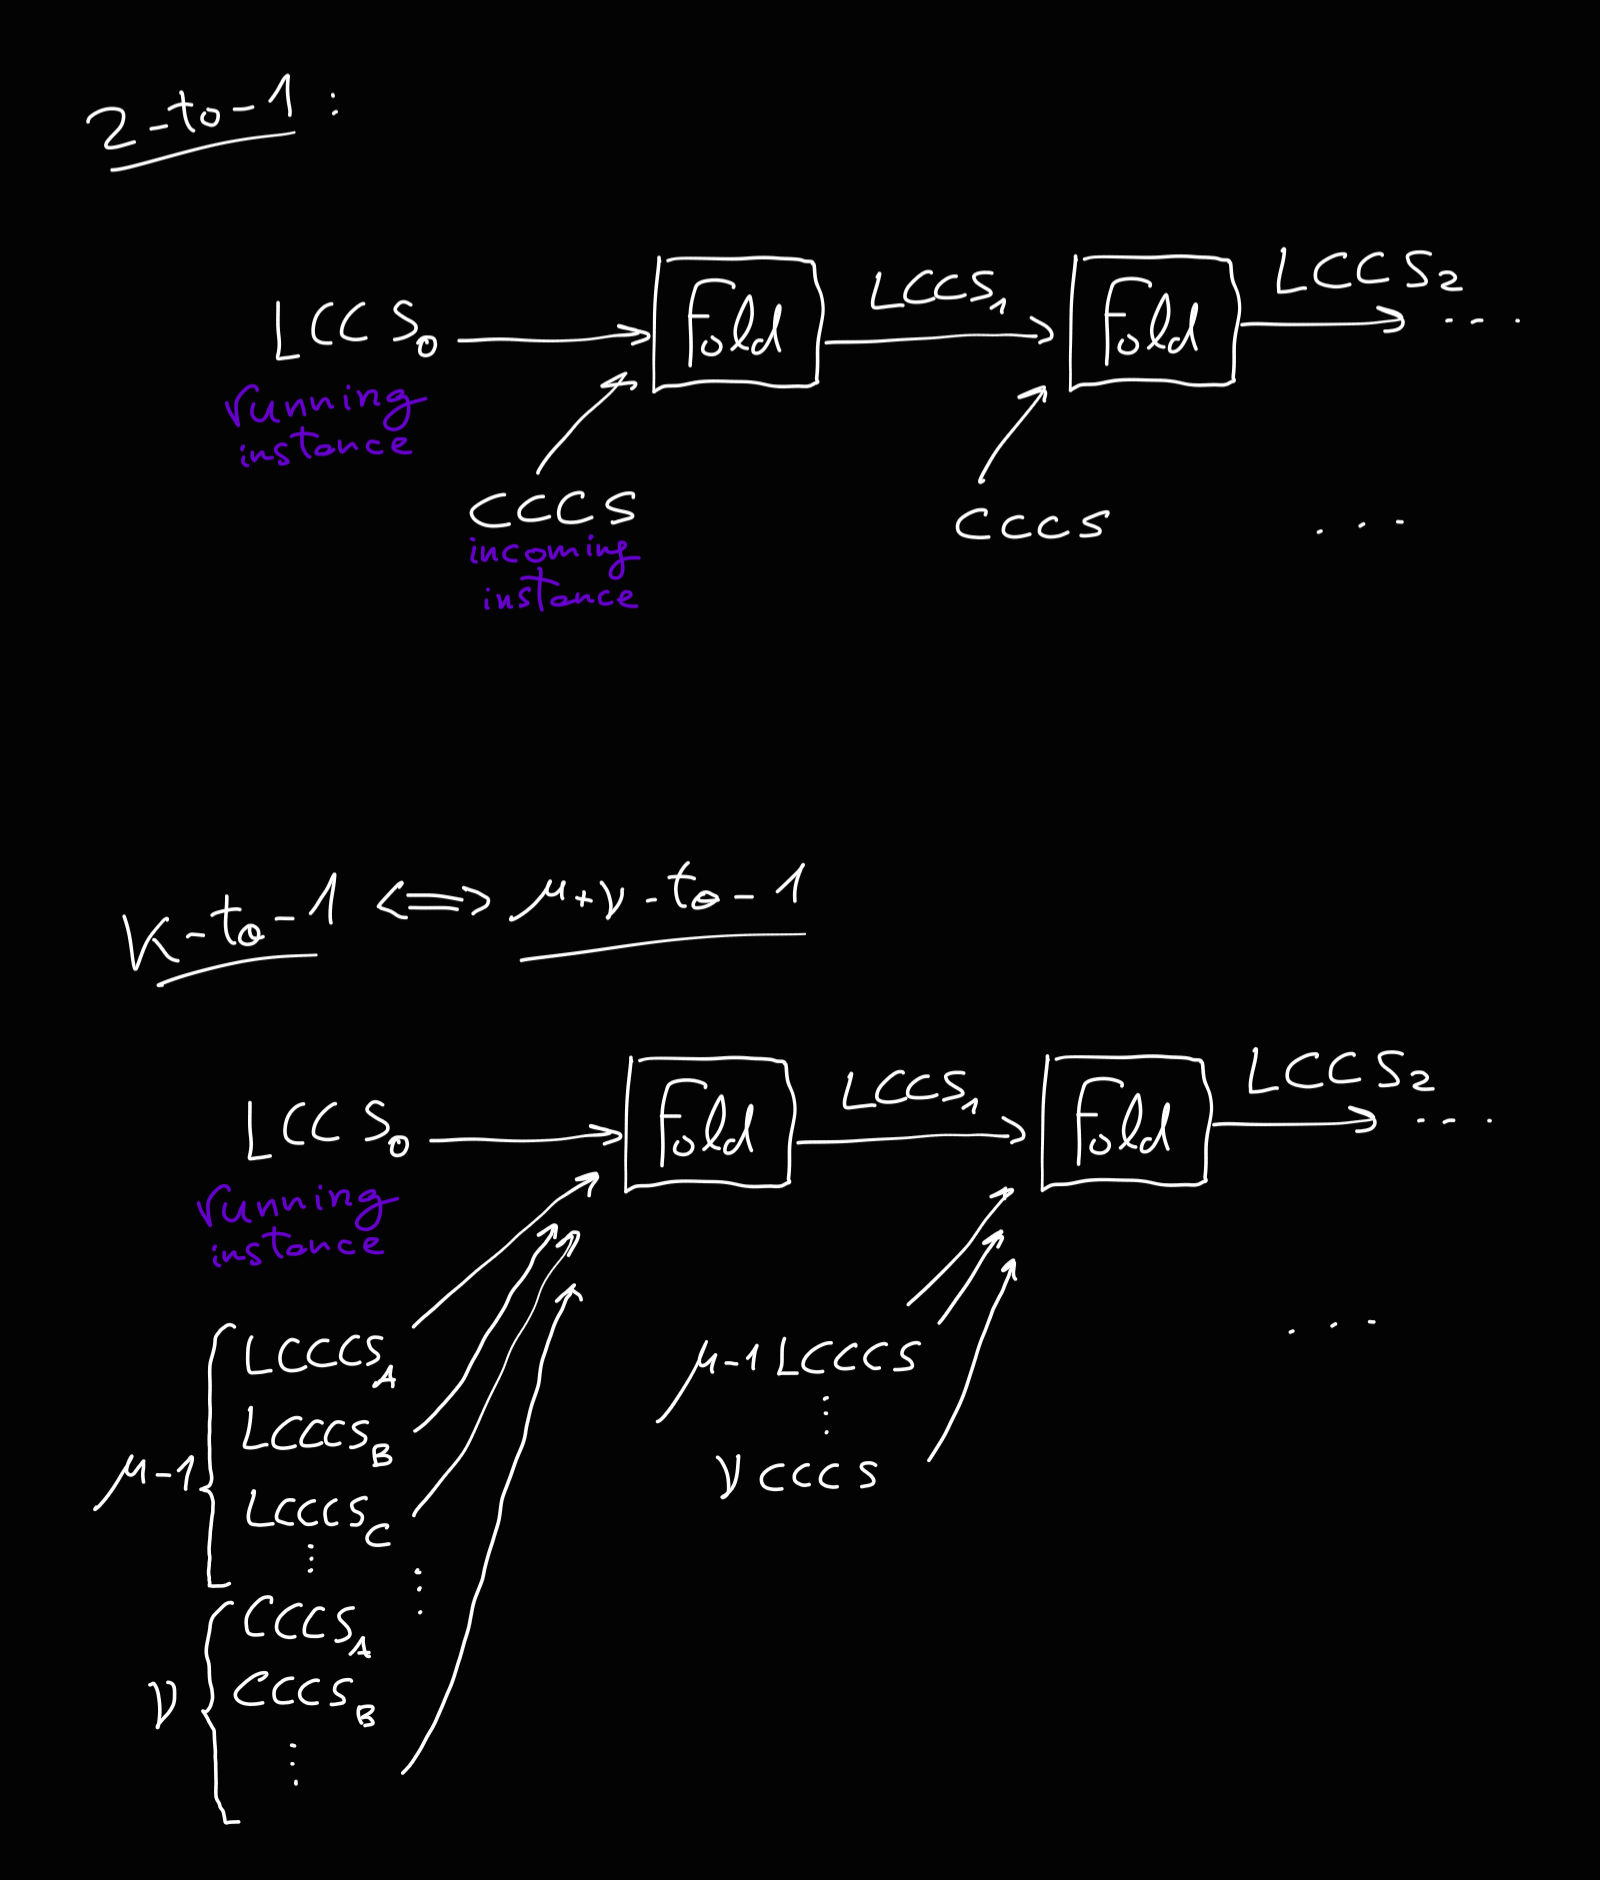 2-to-1 :
LCCS₀
Fold
LCCS₁
Fold
LCCS₂ ...
running
instance
CCCS
CCCS
...
incoming
instance
K-to-1 <=> μ+ν-to-1
LCCS₀
Fold
LCCS₁
Fold
LCCS₂ ...
running
instance
μ-1
LCCCS_A
LCCCS_B
LCCCS_C
⋮
⋮
ν
CCCS_A
CCCS_B
⋮
μ-1 LCCCS
⋮
ν CCCS
...